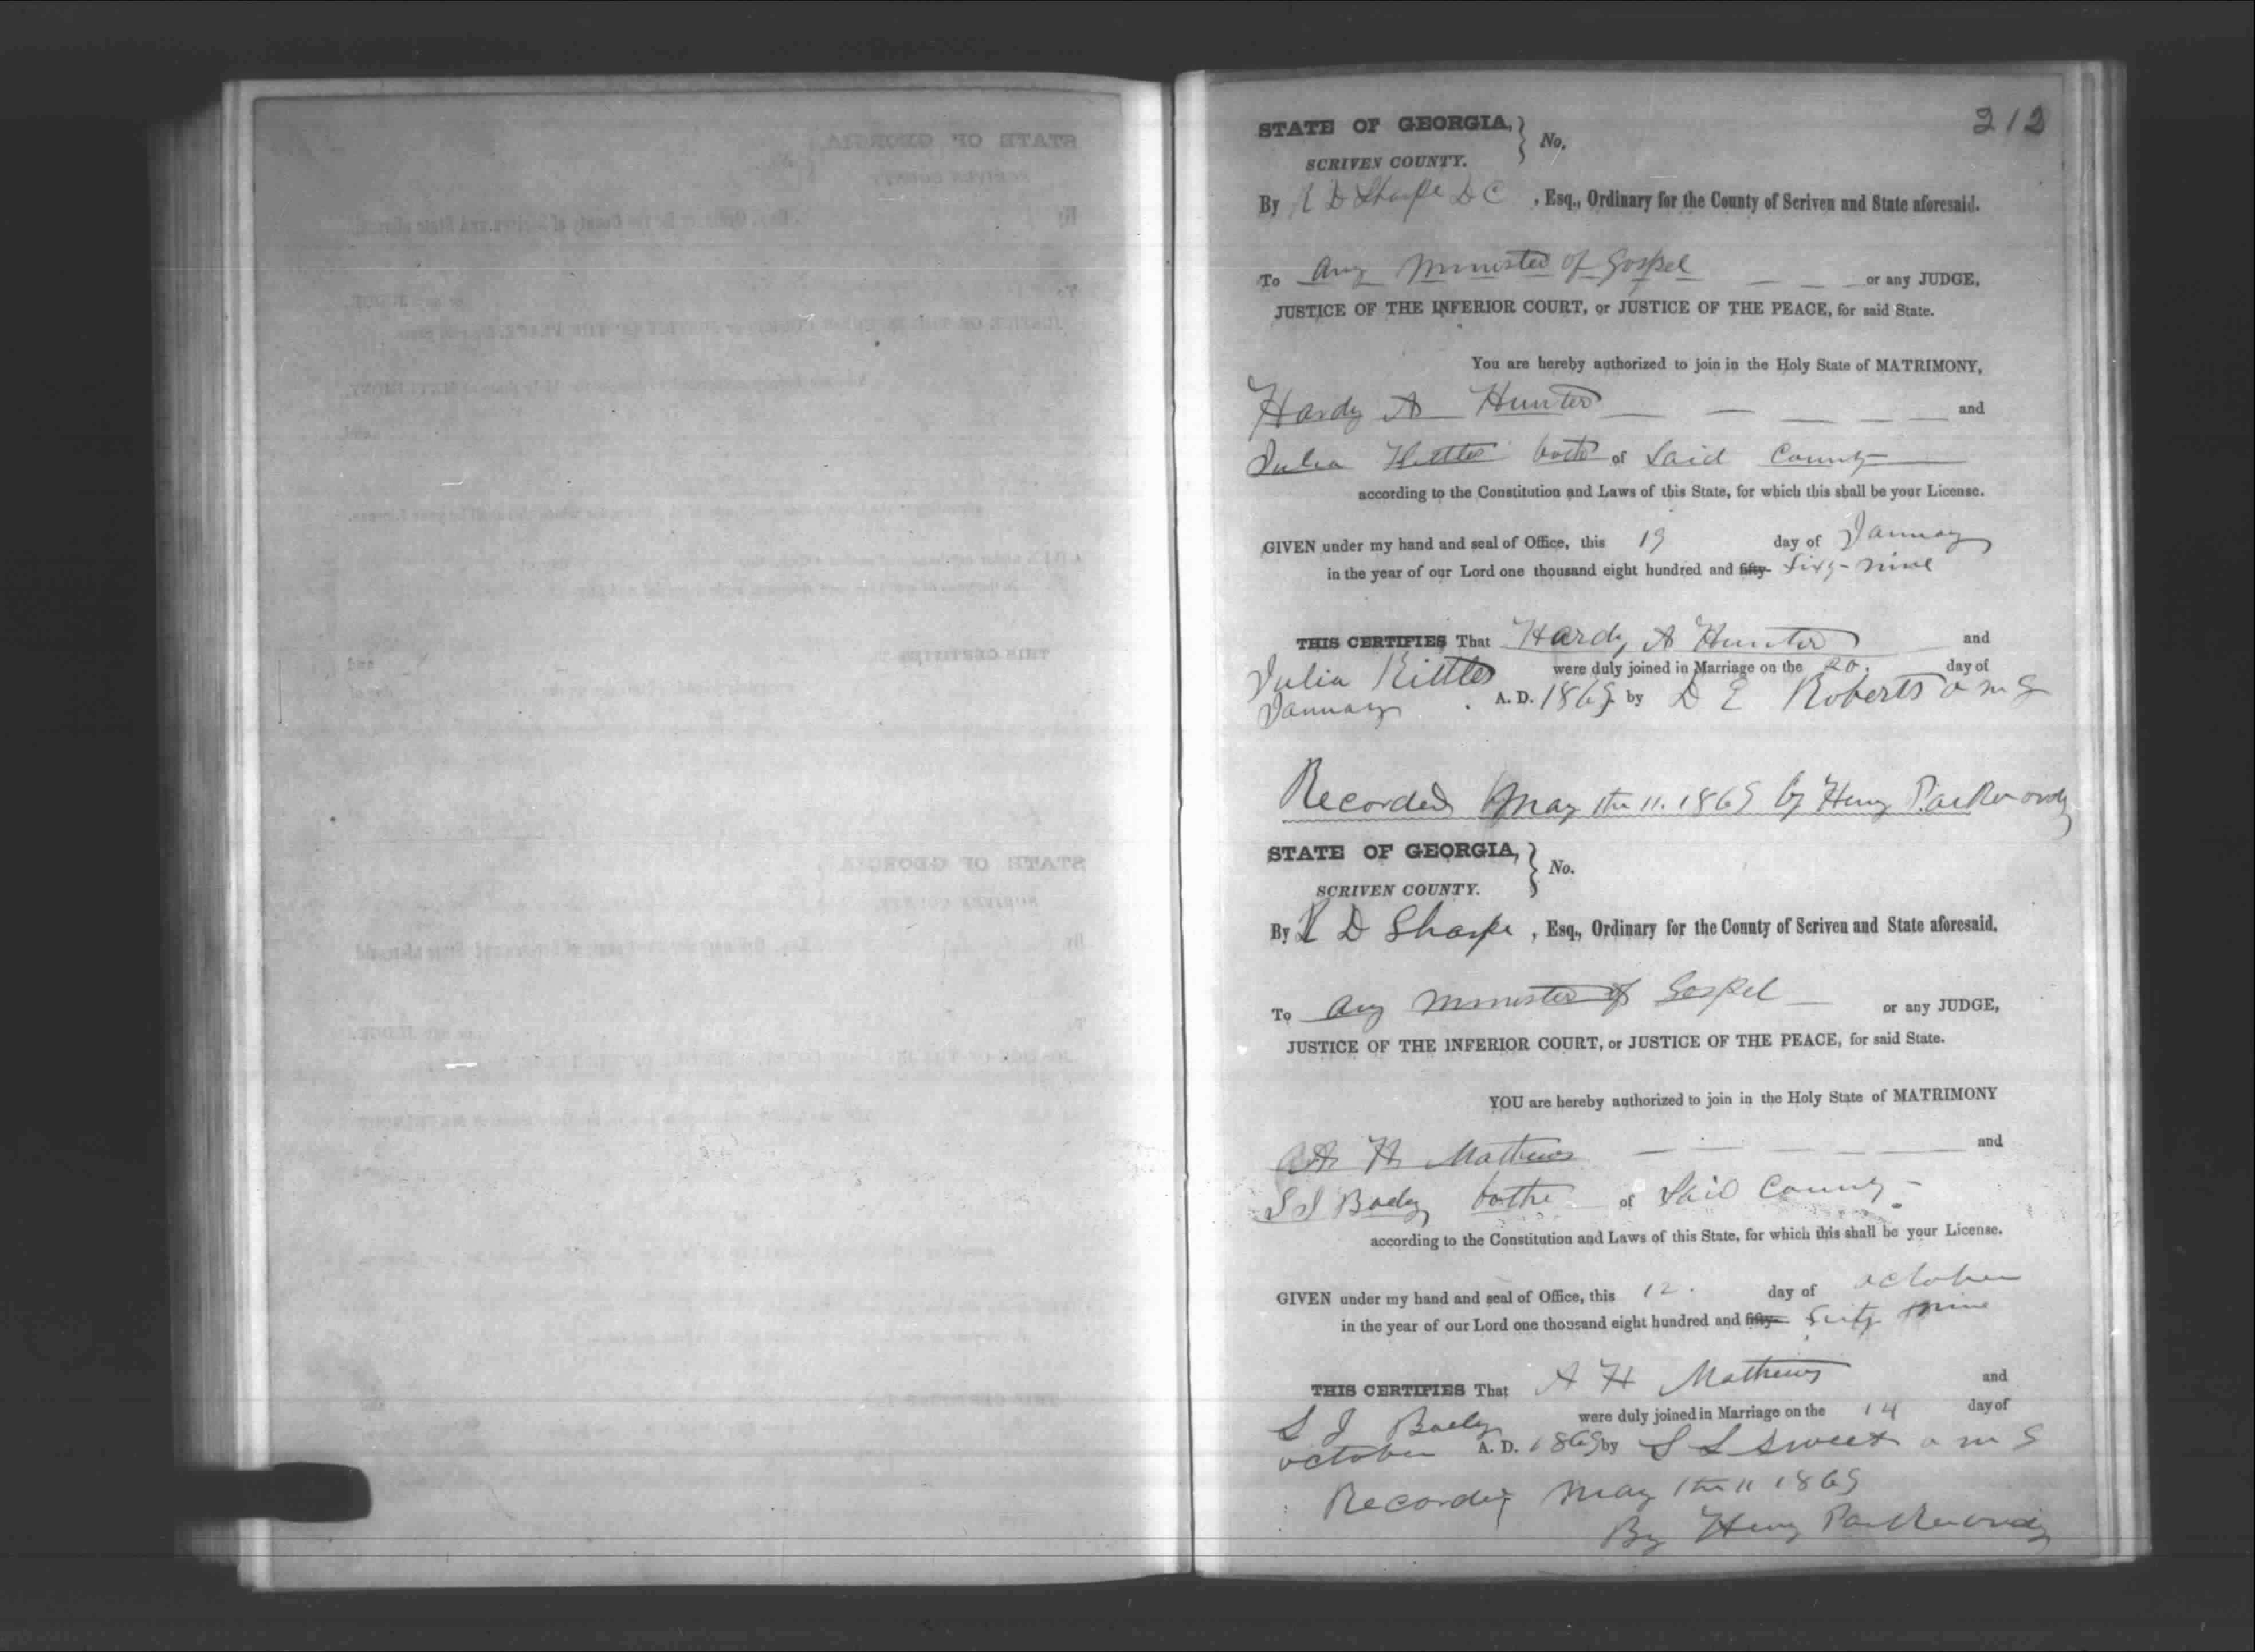 212
STATE OF GEORGIA, } No.
SCRIVEN COUNTY.
By R D Sharpe D C , Esq., Ordinary for the County of Scriven and State aforesaid.
To any Minister of Gospel or any JUDGE,
JUSTICE OF THE INFERIOR COURT, or JUSTICE OF THE PEACE, for said State.
You are hereby authorized to join in the Holy State of MATRIMONY,
Hardy A Hunter and
Julia Kittles both of Said County
according to the Constitution and Laws of this State, for which this shall be your License.
GIVEN under my hand and seal of Office, this 19 day of January
in the year of our Lord one thousand eight hundred and fifty- Sixty-nine
THIS CERTIFIES That Hardy A Hunter and
Julia Kittles were duly joined in Marriage on the 20. day of
January A. D. 1869 by D E Roberts o m g
Recorded May the 11. 1869 by Henry Parker ordy
STATE OF GEORGIA, } No.
SCRIVEN COUNTY.
By R D Sharpe , Esq., Ordinary for the County of Scriven and State aforesaid.
To any minister of Gospel or any JUDGE,
JUSTICE OF THE INFERIOR COURT, or JUSTICE OF THE PEACE, for said State.
YOU are hereby authorized to join in the Holy State of MATRIMONY
H Mathews and
S J Baely bothe of Said County
according to the Constitution and Laws of this State, for which this shall be your License.
GIVEN under my hand and seal of Office, this 12. day of october
in the year of our Lord one thousand eight hundred and fifty- Sixty nine
THIS CERTIFIES That A H Mathews and
S J Baely were duly joined in Marriage on the 14 day of
october A. D. 1869 by S L Sweet o m g
Recorded May the 11 1869
By Henry Parker ordy